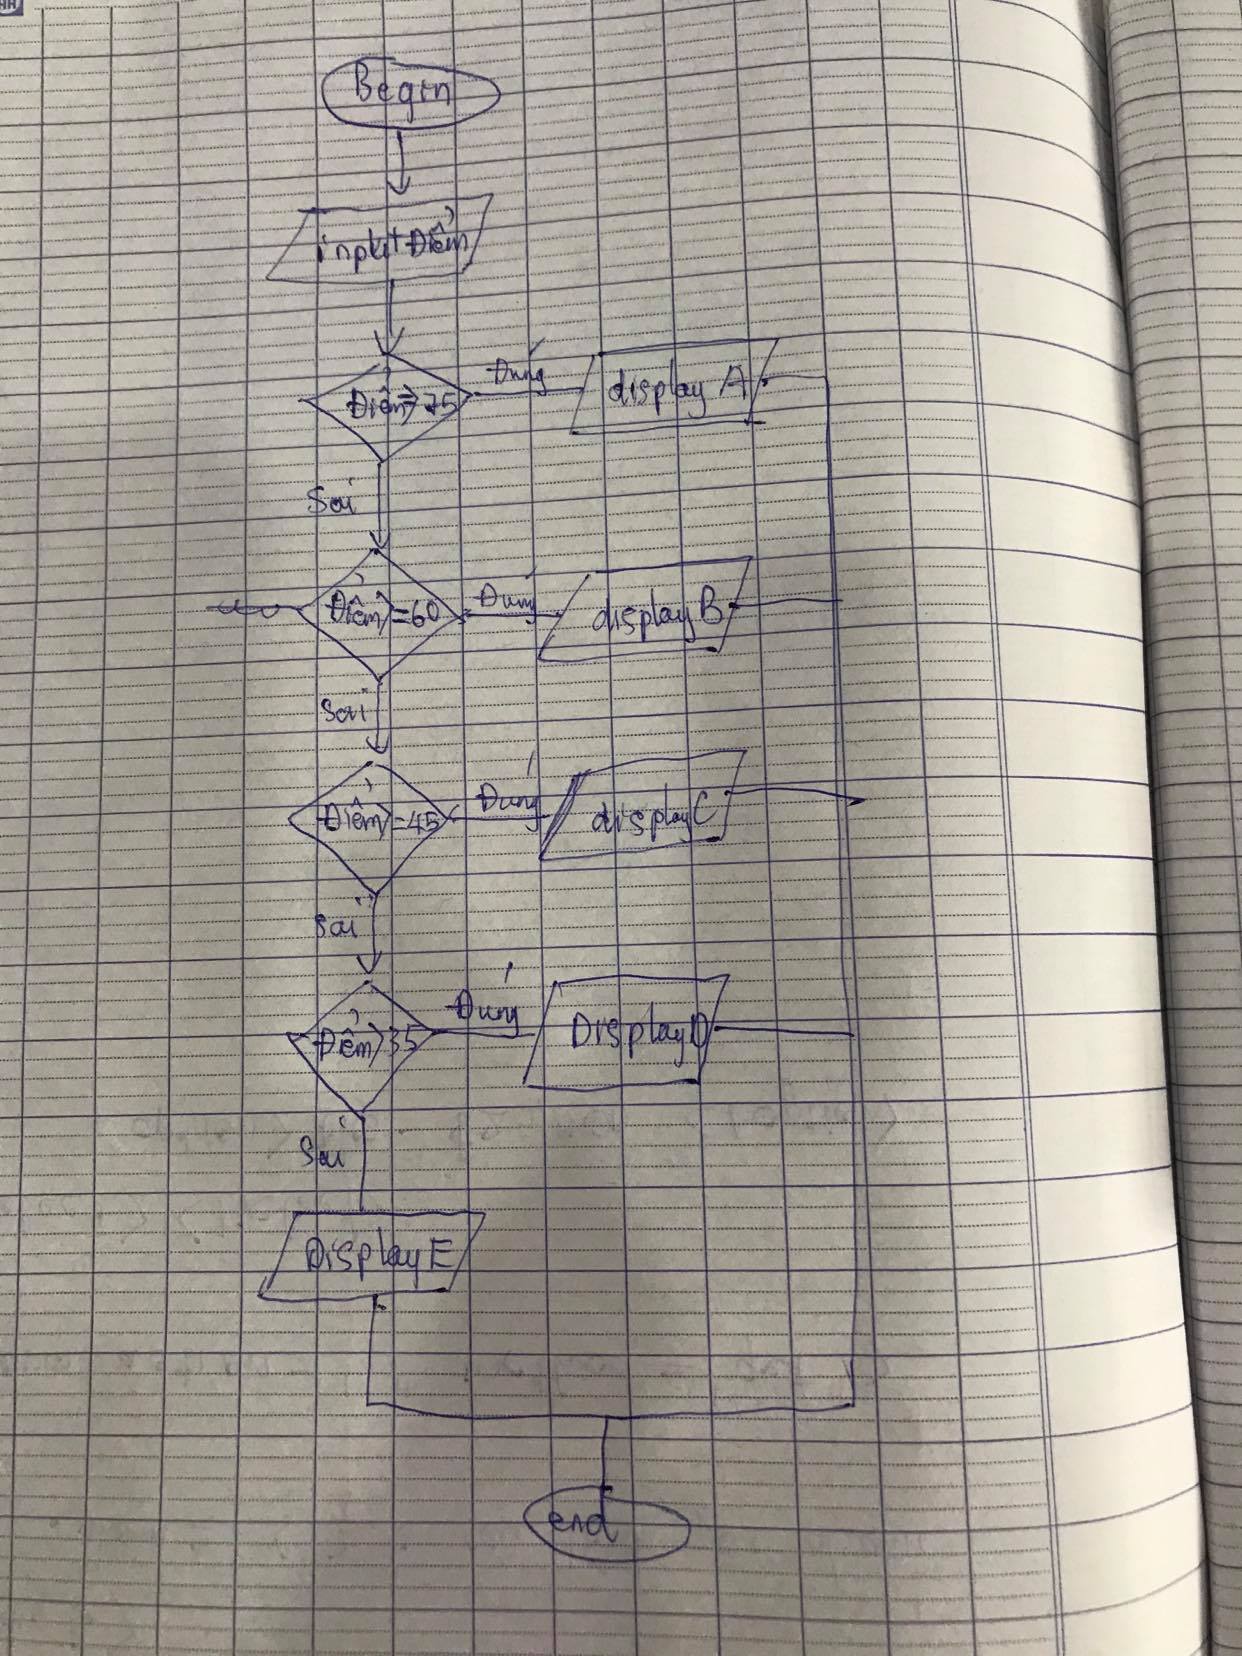 Begin
input Điểm
Điểm>=75
Đúng
display A
Sai
Điểm>=60
Đúng
display B
Sai
Điểm>=45
Đúng
display C
Sai
Điểm>35
Đúng
Display D
Sai
Display E
end